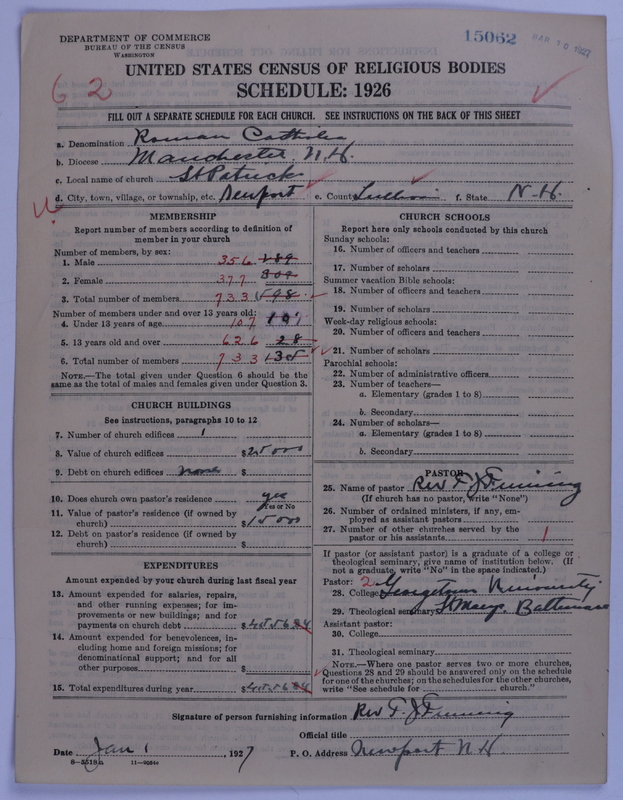 DEPARTMENT OF COMMERCE
BUREAU OF THE CENSUS
WASHINGTON
15062
MAR 10 1927
62
UNITED STATES CENSUS OF RELIGIOUS BODIES
SCHEDULE: 1926
FILL OUT A SEPARATE SCHEDULE FOR EACH CHURCH. SEE INSTRUCTIONS ON THE BACK OF THIS SHEET
a. Denomination Roman Catholic
b. Diocese Manchester N.H.
c. Local name of church St Patrick
d. City, town, village, or township, etc. Newport e. County Sullivan f. State N-H.
MEMBERSHIP
Report number of members according to definition of
member in your church
Number of members, by sex:
1. Male 356 189
2. Female 377 309
3. Total number of members 733 498
Number of members under and over 13 years old:
4. Under 13 years of age 107 107
5. 13 years old and over 626 28
6. Total number of members 733 135
NOTE.—The total given under Question 6 should be the
same as the total of males and females given under Question 3.
CHURCH BUILDINGS
See instructions, paragraphs 10 to 12
7. Number of church edifices 1
8. Value of church edifices $25000
9. Debt on church edifices none $
10. Does church own pastor's residence yes
Yes or No
11. Value of pastor's residence (if owned by
church) $15000
12. Debt on pastor's residence (if owned by
church) $
EXPENDITURES
Amount expended by your church during last fiscal year
13. Amount expended for salaries, repairs,
and other running expenses; for im-
provements or new buildings; and for
payments on church debt $4556.84
14. Amount expended for benevolences, in-
cluding home and foreign missions; for
denominational support; and for all
other purposes $
15. Total expenditures during year $4556.84
CHURCH SCHOOLS
Report here only schools conducted by this church
Sunday schools:
16. Number of officers and teachers
17. Number of scholars
Summer vacation Bible schools:
18. Number of officers and teachers
19. Number of scholars
Week-day religious schools:
20. Number of officers and teachers
21. Number of scholars
Parochial schools:
22. Number of administrative officers
23. Number of teachers—
a. Elementary (grades 1 to 8)
b. Secondary
24. Number of scholars—
a. Elementary (grades 1 to 8)
b. Secondary
PASTOR
25. Name of pastor Rev
(If church has no pastor, write "None")
26. Number of ordained ministers, if any, em-
ployed as assistant pastors
27. Number of other churches served by the
pastor or his assistants 1
If pastor (or assistant pastor) is a graduate of a college or
theological seminary, give name of institution below. (If
not a graduate, write "No" in the space indicated.)
Pastor: 2
28. College Georgetown University
29. Theological seminary St Marys Baltimore
Assistant pastor:
30. College
31. Theological seminary
NOTE.—Where one pastor serves two or more churches,
Questions 28 and 29 should be answered only on the schedule
for one of the churches; on the schedules for the other churches,
write "See schedule for church."
Signature of person furnishing information Rev
Official title
Date Jan 1 1927 P. O. Address Newport N H
8—5518a 11—9034a